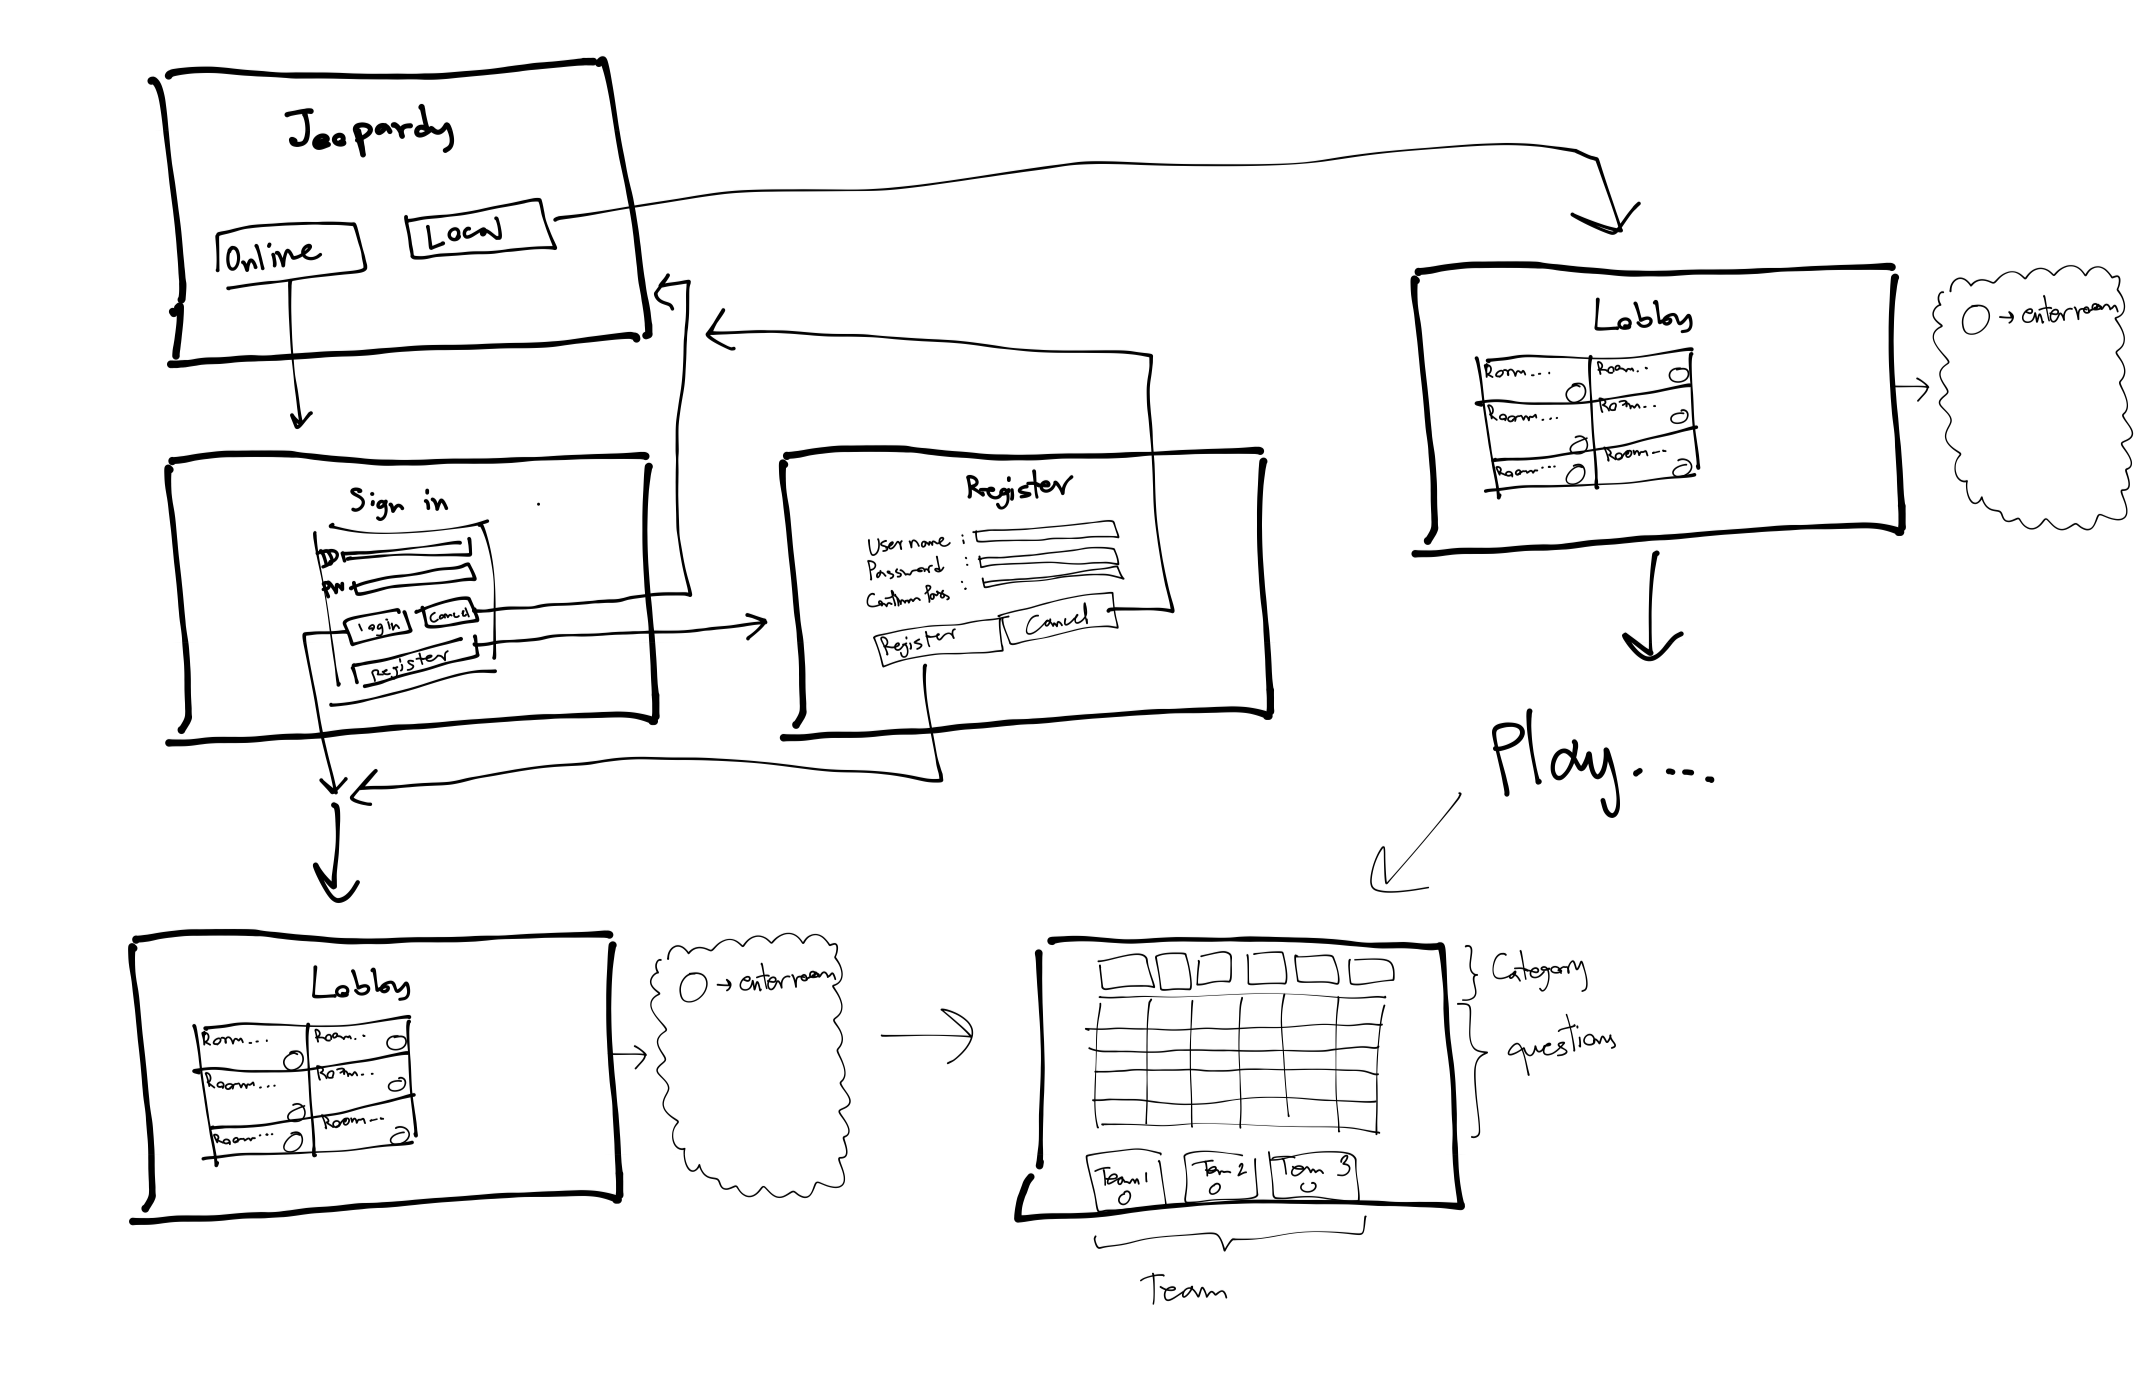 Jeopardy
Online
Local
Sign in
ID
PW
Login
Cancel
Register
Register
User name :
Password :
Confirm Pass :
Register
Cancel
Lobby
Room... Room..
Room... Room..
Room... Room...
→ enter room
Play.....
Lobby
Room... Room..
Room... Room...
Room... Room...
→ enter room
Category
questions
Team 1
Team 2
Team 3
Team